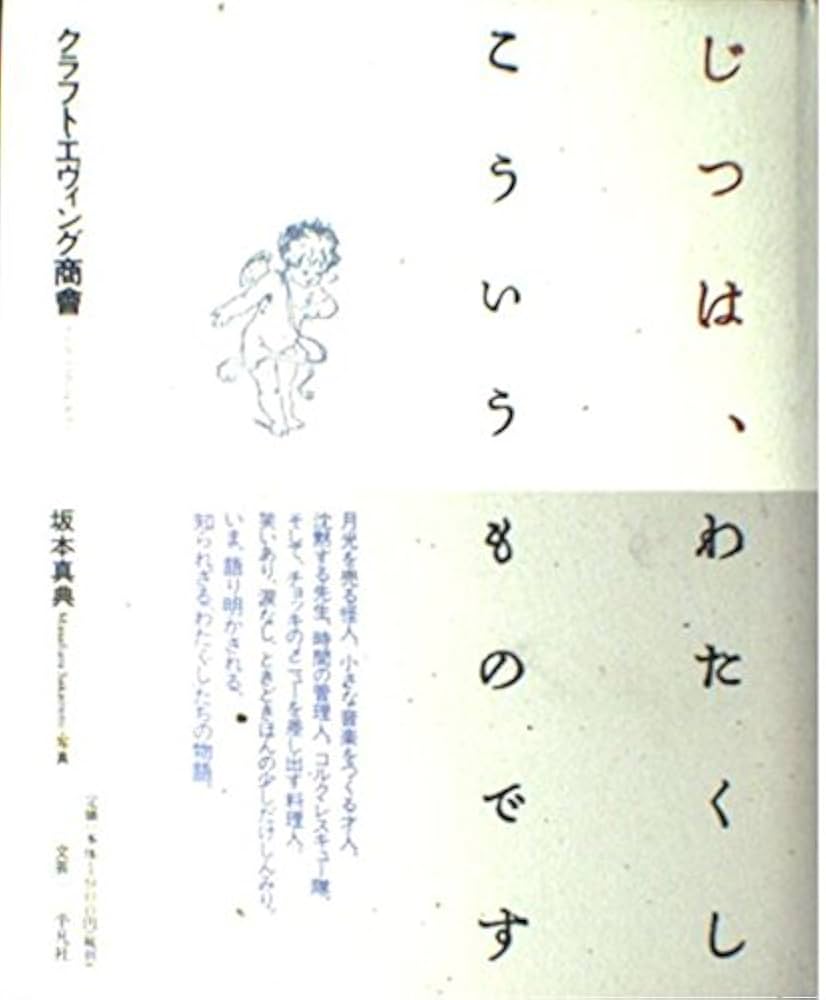 じつは、わたくし
こういうものです
月光を売る怪人、小さな音楽をつくる才人、
沈黙する先生、時間の管理人、コルク・レスキュー隊、
そして、チョッキのメニューを差し出す料理人。
笑いあり、涙なし、ときどきほんの少しだけしんみり。
いま、語り明かされる、
知られざるわたくしたちの物語。
クラフト・エヴィング商會
坂本真典 写真
文芸 平凡社